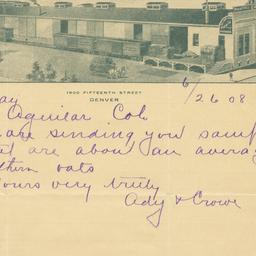 1900 FIFTEENTH STREET
DENVER
6/26 08
ay
Aguilar Col.
are sending you samp
t are about an averag
thern oats
Yours very truly
Ady & Crowe